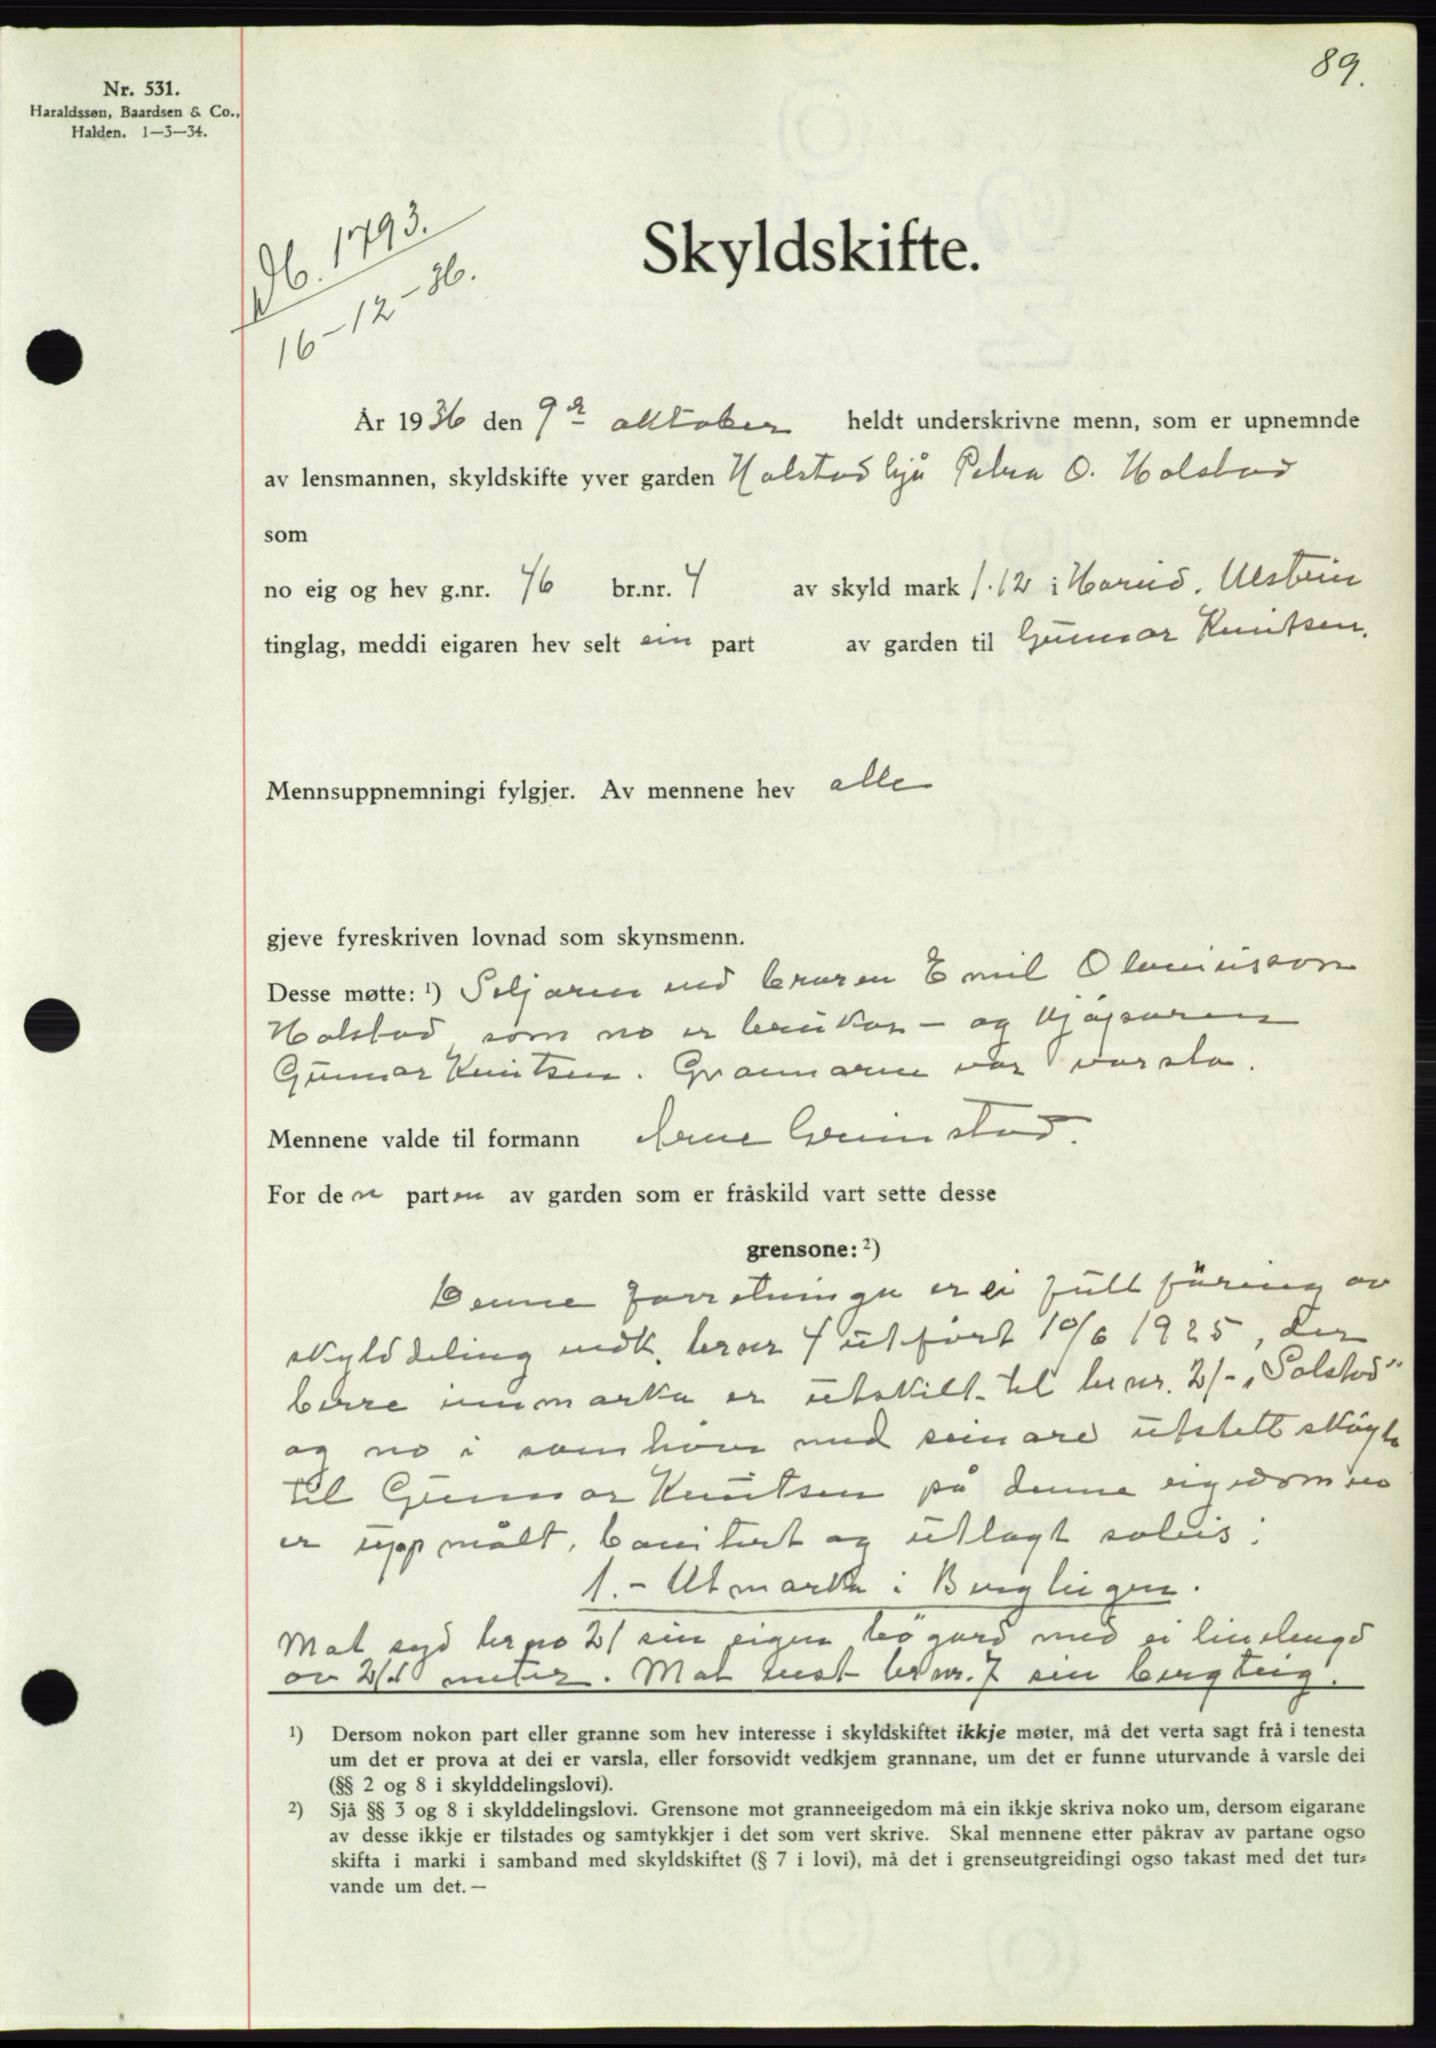 89.
Nr. 531.
Haraldssøn, Baardsen & Co.,
Halden. 1—3—34.
Db. 1793.
16-12-36.
Skyldskifte.
År 1936 den 9de oktober heldt underskrivne menn, som er upnemnde
av lensmannen, skyldskifte yver garden Holstad hjå Petra O. Holstad
som
no eig og hev g.nr. 46 br.nr. 4 av skyld mark 1.12 i Hareid. Ulstein
tinglag, meddi eigaren hev selt ein part av garden til Gunnar Knutsen.
Mennsuppnemningi fylgjer. Av mennene hev alle
gjeve fyreskriven lovnad som skynsmenn.
Desse møtte: 1) Seljaren ved broren Emil
Holstad som no er brukar - og kjøparen
Gunnar Knutsen. Grannarne var varsla.
Mennene valde til formann Arne Grimstad.
For den parten av garden som er fråskild vart sette desse
grensone: 2)
Denne forretninga er ei fullføring av
skylddeling vedk. br nr 4 utført 10/6 1925, der
berre innmarka er utskilt til br nr. 21 - "Solstad"
og no i samhøve med seinare utstett skøyte
til Gunnar Knutsen på denne eigedomen
er uppmålt, bonitert og utlagt soleis:
1. - Utmarka i
Mot syd br no 21 sin eigen bøgard med ei linelengd
av meter. Mot vest br nr. 7 sin bergteig.
1) Dersom nokon part eller granne som hev interesse i skyldskiftet ikkje møter, må det verta sagt frå i tenesta
um det er prova at dei er varsla, eller forsovidt vedkjem grannane, um det er funne uturvande å varsle dei
(§§ 2 og 8 i skylddelingslovi).
2) Sjå §§ 3 og 8 i skylddelingslovi. Grensone mot granneeigedom må ein ikkje skriva noko um, dersom eigarane
av desse ikkje er tilstades og samtykkjer i det som vert skrive. Skal mennene etter påkrav av partane ogso
skifta i marki i samband med skyldskiftet (§ 7 i lovi), må det i grenseutgreidingi ogso takast med det tur-
vande um det. —